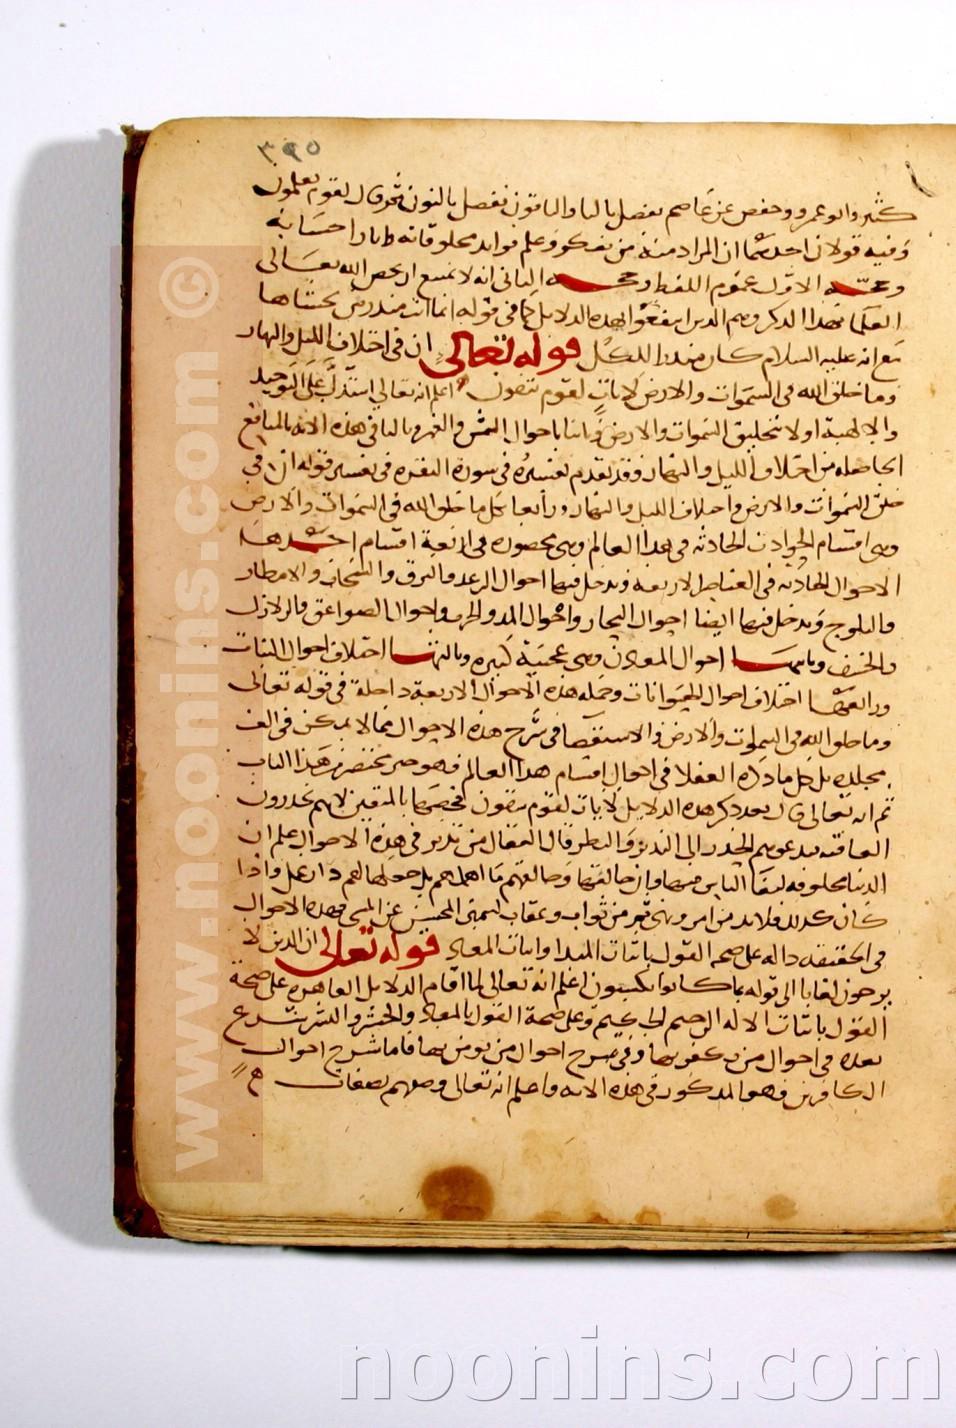 ٣٩٥
كثير وابو عمرو وحفص عن عاصم يفصل باليا والباقون نفصل بالنون ثم قال لقوم يعلمون
وفيه قولان احدهما ان المراد منه من يتفكر ويعلم فوايد مخلوقاته واثار احسانه
وحجــه الاول عموم اللفظ وحجــه الثاني انه لا يمتنع ان يخص الله تعالى
العلما بهذا الذكر وهم الذين انتفعوا بهذه الدلايل كما في قوله انما انت منذر من يخشاها
مع انه عليه السلام كان منذرا للكل قوله تعالى ان في اختلاف الليل والنهار
وما خلق الله في السموات والارض لايات لقوم يتقون اعلم انه تعالى استدل على التوحيد
والالهية اولا بتخليق السموات والارض وثانيا باحوال الشمس والقمر وثالثا في هذه الاية بالمنافع
الحاصلة من اختلاف الليل والنهار وقد تقدم تفسيره في سورة البقرة في تفسير قوله ان في
خلق السموات والارض واختلاف الليل والنهار ورابعا بكل ما خلق الله في السموات والارض
وهي اقسام الحوادث الحادثة في هذا العالم وهي محصورة في اربعة اقسام احدها
الاحوال الحادثة في العناصر الاربعة ويدخل فيها احوال الرعد والبرق والسحاب والامطار
والثلوج ويدخل فيها ايضا احوال البحار واحوال المد والجزر واحوال الصواعق والزلازل
والخسف وثانيها احوال المعادن وهي عجيبة كثيرة وثالثها اختلاف احوال النبات
ورابعها اختلاف احوال الحيوانات وجملة هذه الاحوال الاربعة داخلة في قوله تعالى
وما خلق الله في السموات والارض والاستقصا في شرح هذه الاحوال مما لا يمكن في الف
مجلد بل كل ما ذكره العقلا في احوال اقسام هذا العالم فهو جز مختصر من هذا الباب
ثم انه تعالى قال بعد ذكر هذه الدلايل لايات لقوم يتقون فخصها بالمتقين لانهم يحذرون
العاقبة فيدعوهم الحذر الى التدبر والنظر قال القفال من تدبر في هذه الاحوال علم ان
الدنيا مخلوقة لبقا الناس فيها وان خالقها وخالقهم ما اهملهم بل جعلها لهم دار عمل واذا
كان كذلك فلا بد من امر ونهي ثم من ثواب وعقاب ليتميز المحسن عن المسي فهذه الاحوال
في الحقيقة دالة على صحة القول باثبات المبدا واثبات المعاد قوله تعالى ان الذين لا
يرجون لقانا الى قوله بما كانوا يكسبون اعلم انه تعالى لما اقام الدلايل القاهرة على صحة
القول باثبات الاله الرحيم الحكيم وعلى صحة القول بالمعاد والحشر والنشر شرع
بعده في احوال من يكفر بها وفي شرح احوال من يومن بها فاما شرح احوال
الكافرين فهو المذكور في هذه الاية واعلم انه تعالى وصفهم بصفات
www.noonins.com ©
noonins.com